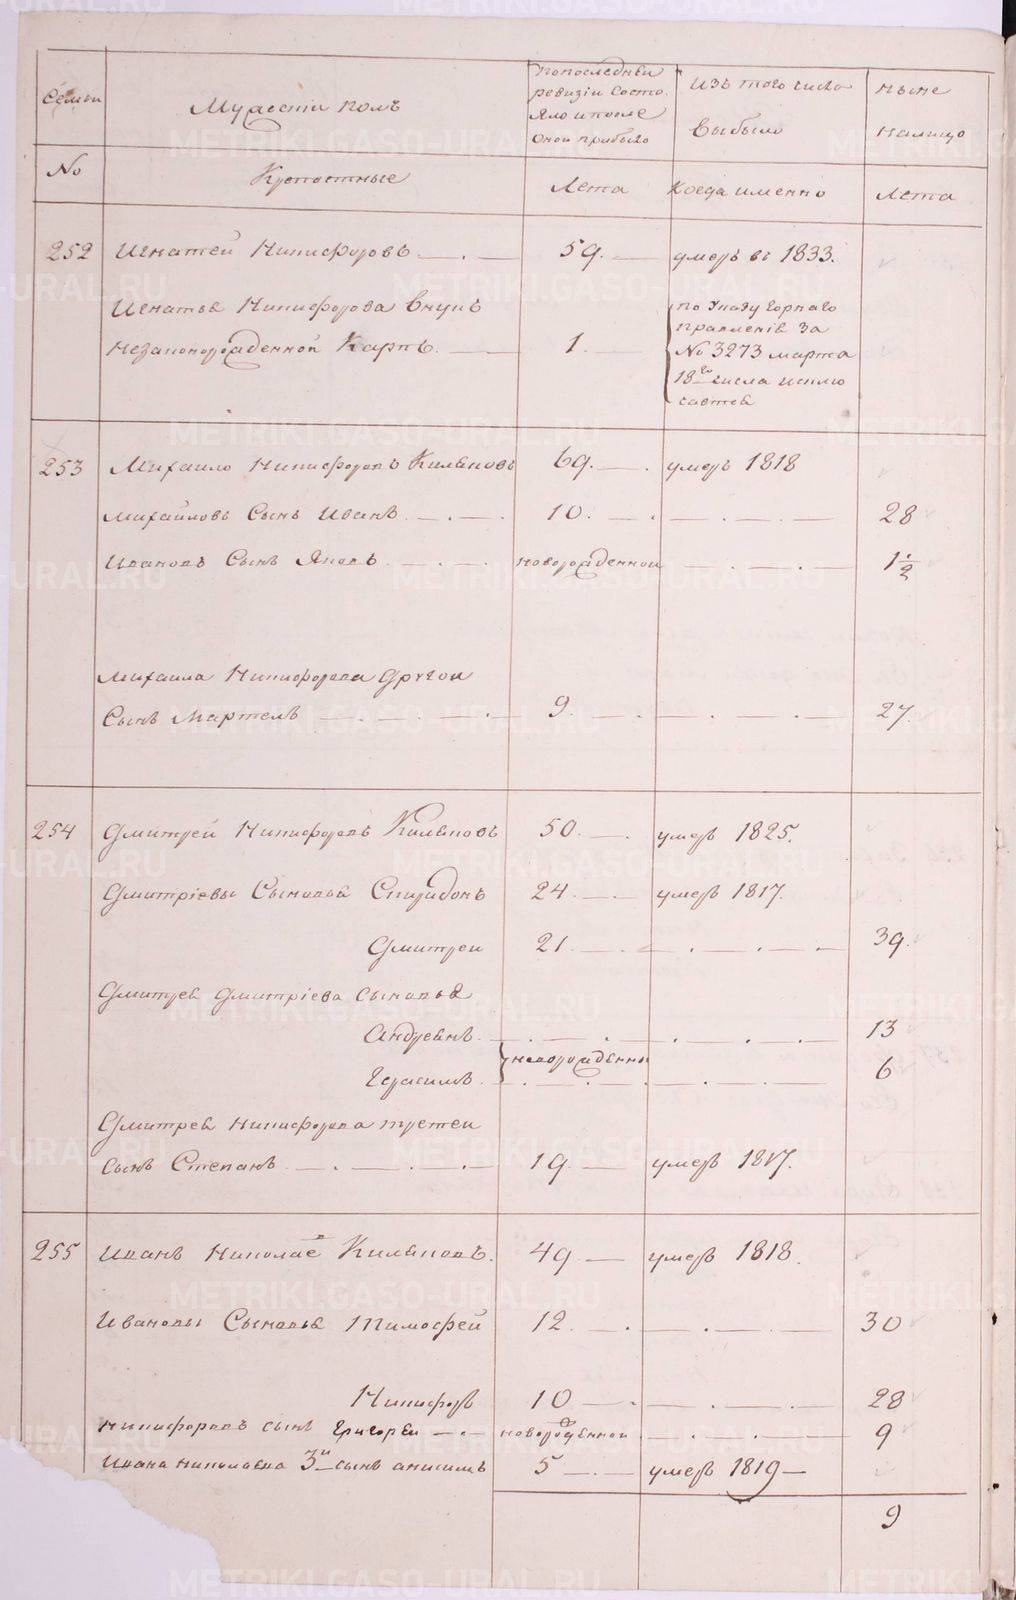 Семьи
Мужескій полъ
попоследней
ревизіи состо
яло и после
оной прибыло
Изъ того числа
выбыло
ныне
налицо
No
Крепостные
Лета
Когда именно
Лета
252 Игнатей Никифоровъ 59. умеръ въ 1833.
Игнатья Никифорова внукъ
незаконорожденной Карпъ. 1.
по Указу Горнаго
правленія за
No 3273 марта
18го числа
253 Михайло Никифоровъ Килиновъ 69. умеръ 1818
Михайловъ Сынъ Иванъ 10. 28
Ивановъ Сынъ Яковъ новорожденной 1 1/2
Михаила Никифорова другой
Сынъ Мартемъ 9. 27.
254 Дмитрей Никифоровъ Килиновъ 50. умеръ 1825.
Дмитріевы Сыновья Спиридонъ 24. умеръ 1817.
Дмитрей 21. 39.
Дмитрея Дмитріева сыновья
Андреянъ 13
новорожденны
Герасимъ 6
Дмитрея Никифорова третей
сынъ Степанъ 19 умеръ 1817.
255 Иванъ Николаевъ Килиновъ. 49 умеръ 1818.
Ивановы Сыновья Тимофей 12. 30
Никифоръ 10 28
Никифоровъ сынъ Григорей новорожденной 9
Ивана Николаева 3й сынъ Анисимъ 5 умеръ 1819
9
METRIKI.GASO-URAL.RU